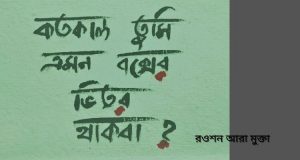 কতকাল তুমি
এমন বক্সের
ভিতর
থাকবা ?
রওশন আরা মুক্তা